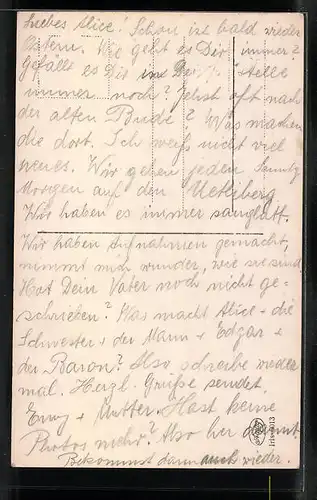 Liebes Alice! Schon ist bald wieder
Ostern. Wie geht es Dir immer?
Gefällt es Dir in Der Stelle
immer noch? Gehst oft nach
der alten "Bude"? Was machen
die dort. Ich weiß nicht viel
neues. Wir gehen jeden Sonntg
Morgen auf den Uetliberg
Wir haben es immer sauglatt.
Wir haben Aufnahmen gemacht,
nimmt mich wunder, wie sie sind
Hat Dein Vater noch nicht ge-
schrieben? Was macht Alice + die
Schwester + der Mann + Edgar +
der Baron? Also schreibe wieder
mal. Herzl. Grüße sendet
Emy + Mutter. Hast keine
Photos mehr? Also her damit.
Bekommst dann auch wieder.
Iris 5013